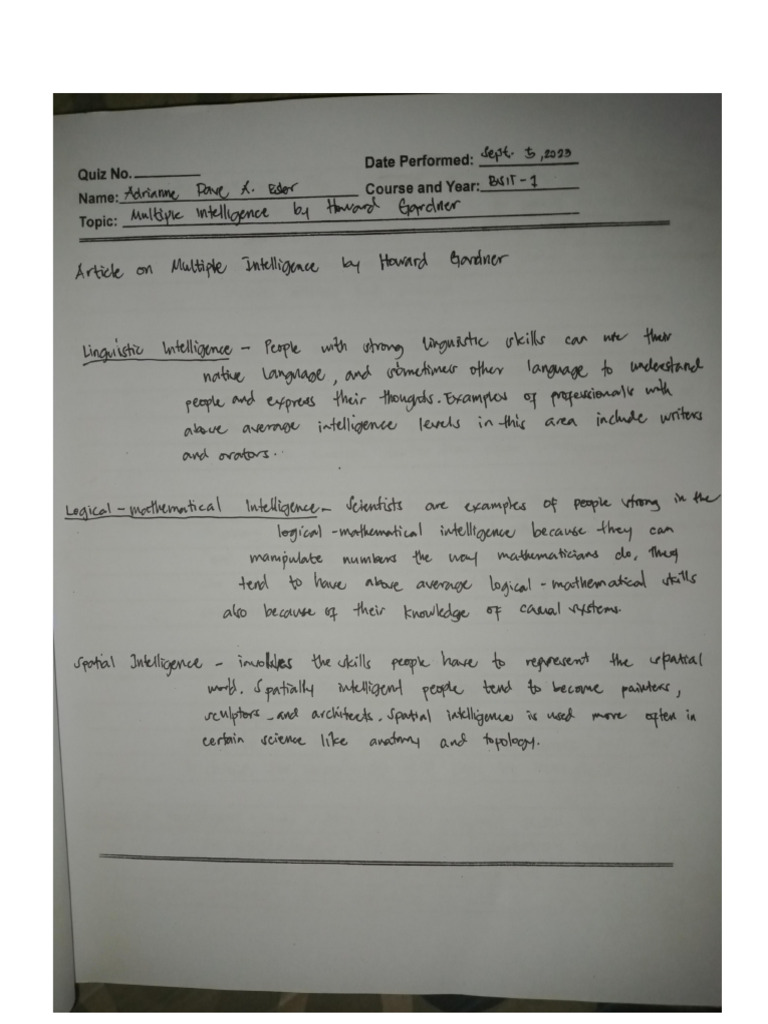 Quiz No.
Date Performed: Sept. 5, 2023
Name: Adrianne Dave A.
Course and Year: BSIT - 1
Topic: Multiple Intelligence by Howard Gardner
Article on Multiple Intelligence by Howard Gardner
Linguistic Intelligence - People with strong linguistic skills can use their
native language, and sometimes other language to understand
people and express their thoughts. Examples of professionals with
above average intelligence levels in this area include writers
and orators..
Logical - mathematical Intelligence - Scientists are examples of people strong in the
logical - mathematical intelligence because they can
manipulate numbers the way mathematicians do, They
tend to have above average logical - mathematical skills
also because of their knowledge of casual systems.
Spatial Intelligence - involves the skills people have to represent the spatial
world. Spatially intelligent people tend to become painters,
sculptors, and architects. Spatial intelligence is used more often in
certain science like anatomy and topology.